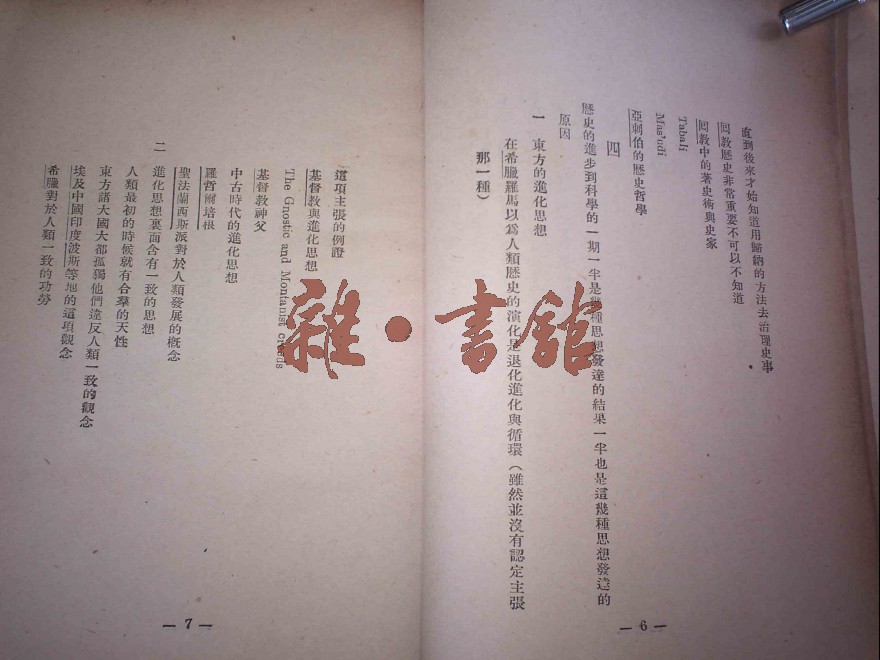 直到後來才始知道用歸納的方法去治理史事
回教歷史非常重要不可以不知道
回教中的著史術與史家
Tabali
Mas'udi
亞剌伯的歷史哲學
四
歷史的進步到科學的一期一半是幾種思想發達的結果一半也是這幾種思想發達的
原因
一 東方的進化思想
在希臘羅馬以爲人類歷史的演化是退化進化與循環（雖然並沒有認定主張
那一種）
— 6 —
這項主張的例證
基督教與進化思想
The Gnostic and Montanist creeds
基督教神父
中古時代的進化思想
羅哲爾培根
聖法蘭西斯派對於人類發展的概念
二 進化思想裏面含有一致的思想
人類最初的時候就有合羣的天性
東方諸大國大都孤獨他們違反人類一致的觀念
埃及中國印度波斯等地的這項觀念
希臘對於人類一致的功勞
— 7 —
雜·書館